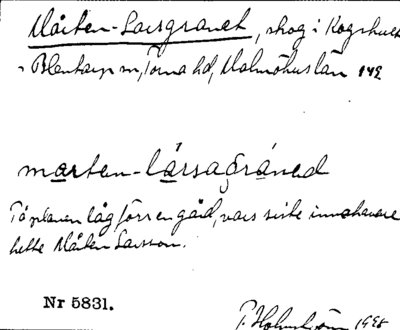 Mårten-Larsgranet, skog i Kogshult
i Blentarp sn, Torna hd, Malmöhus län
marten-lársagráned
På planen låg förr en gård, vars siste innehavare
hette Mårten Larsson.
Nr 5831.
P. Holmström 1998